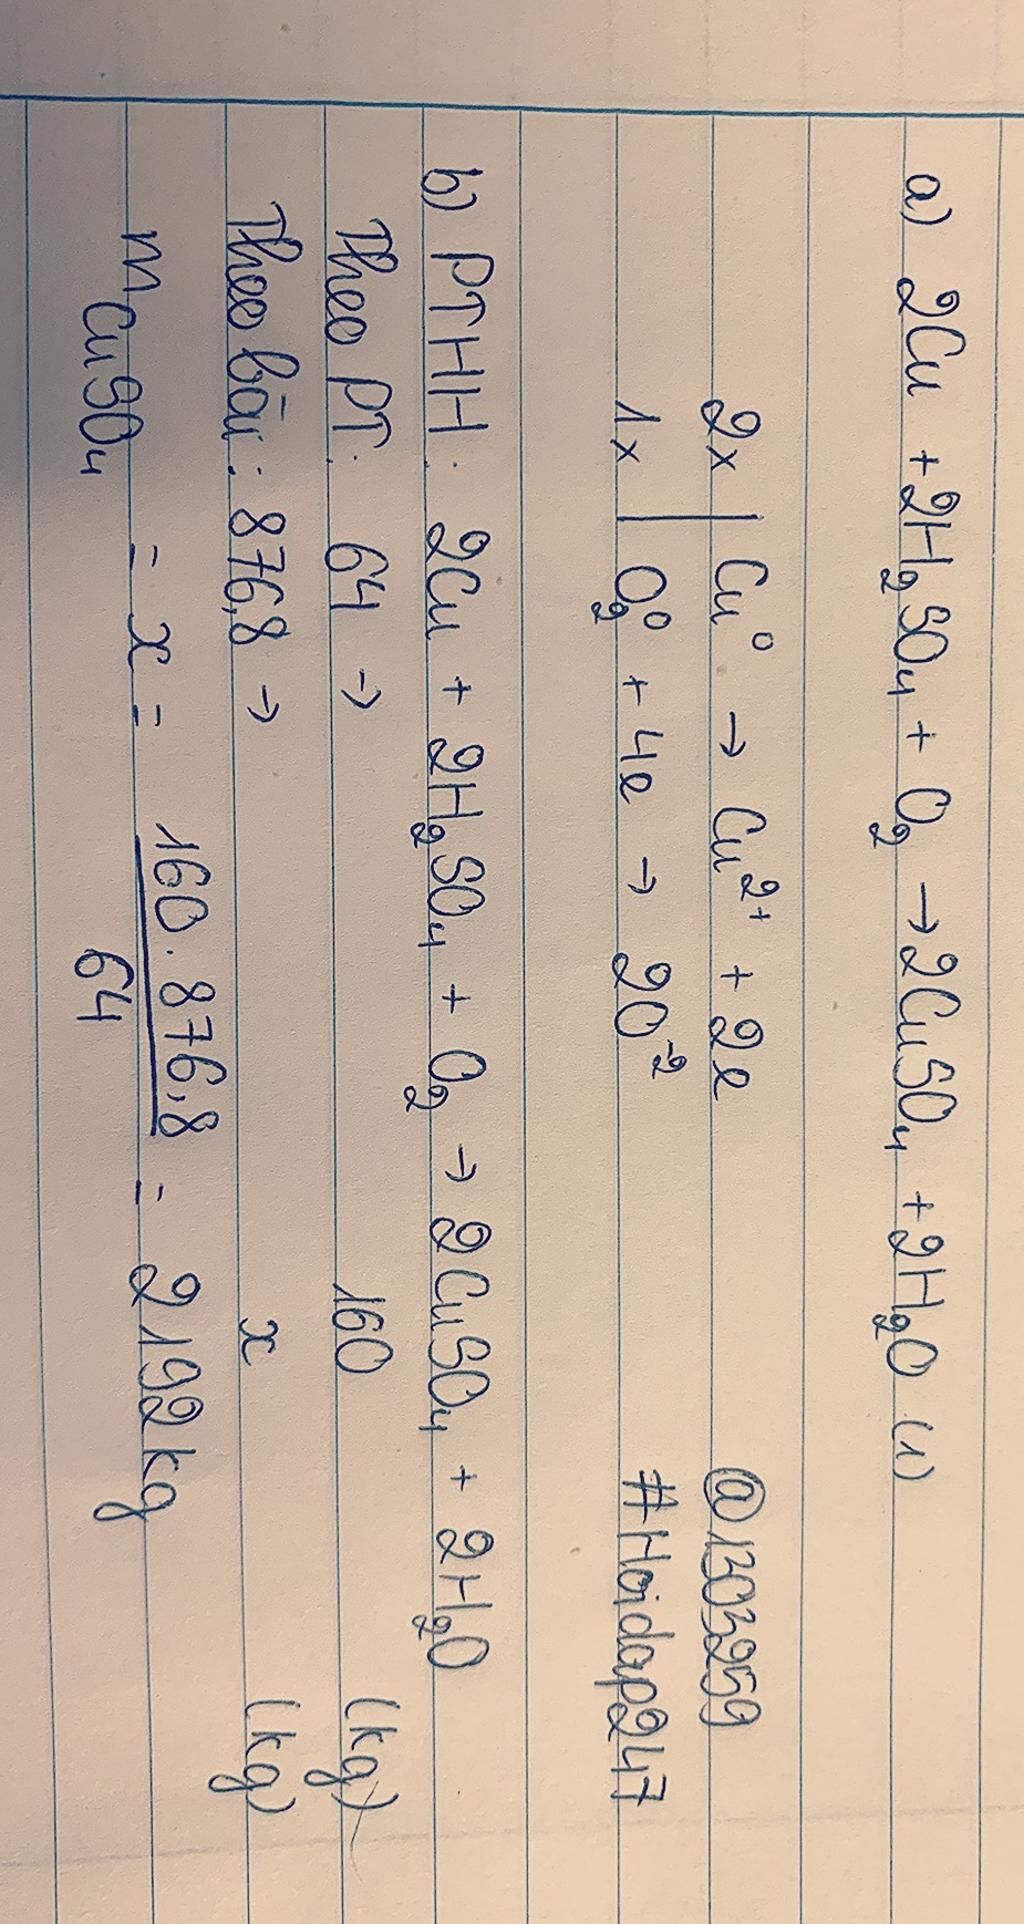 a) 2Cu + 2H₂SO₄ + O₂ → 2CuSO₄ + 2H₂O (1)
2x | Cu⁰ → Cu²⁺ + 2e @1303259
1x | O₂⁰ + 4e → 2O⁻² #Hoidap247
b) PTHH: 2Cu + 2H₂SO₄ + O₂ → 2CuSO₄ + 2H₂O
Theo PT: 64 → 160 (kg)
Theo bài: 876,8 → x (kg)
m CuSO₄ = x = 160 . 876,8 / 64 = 2192 kg